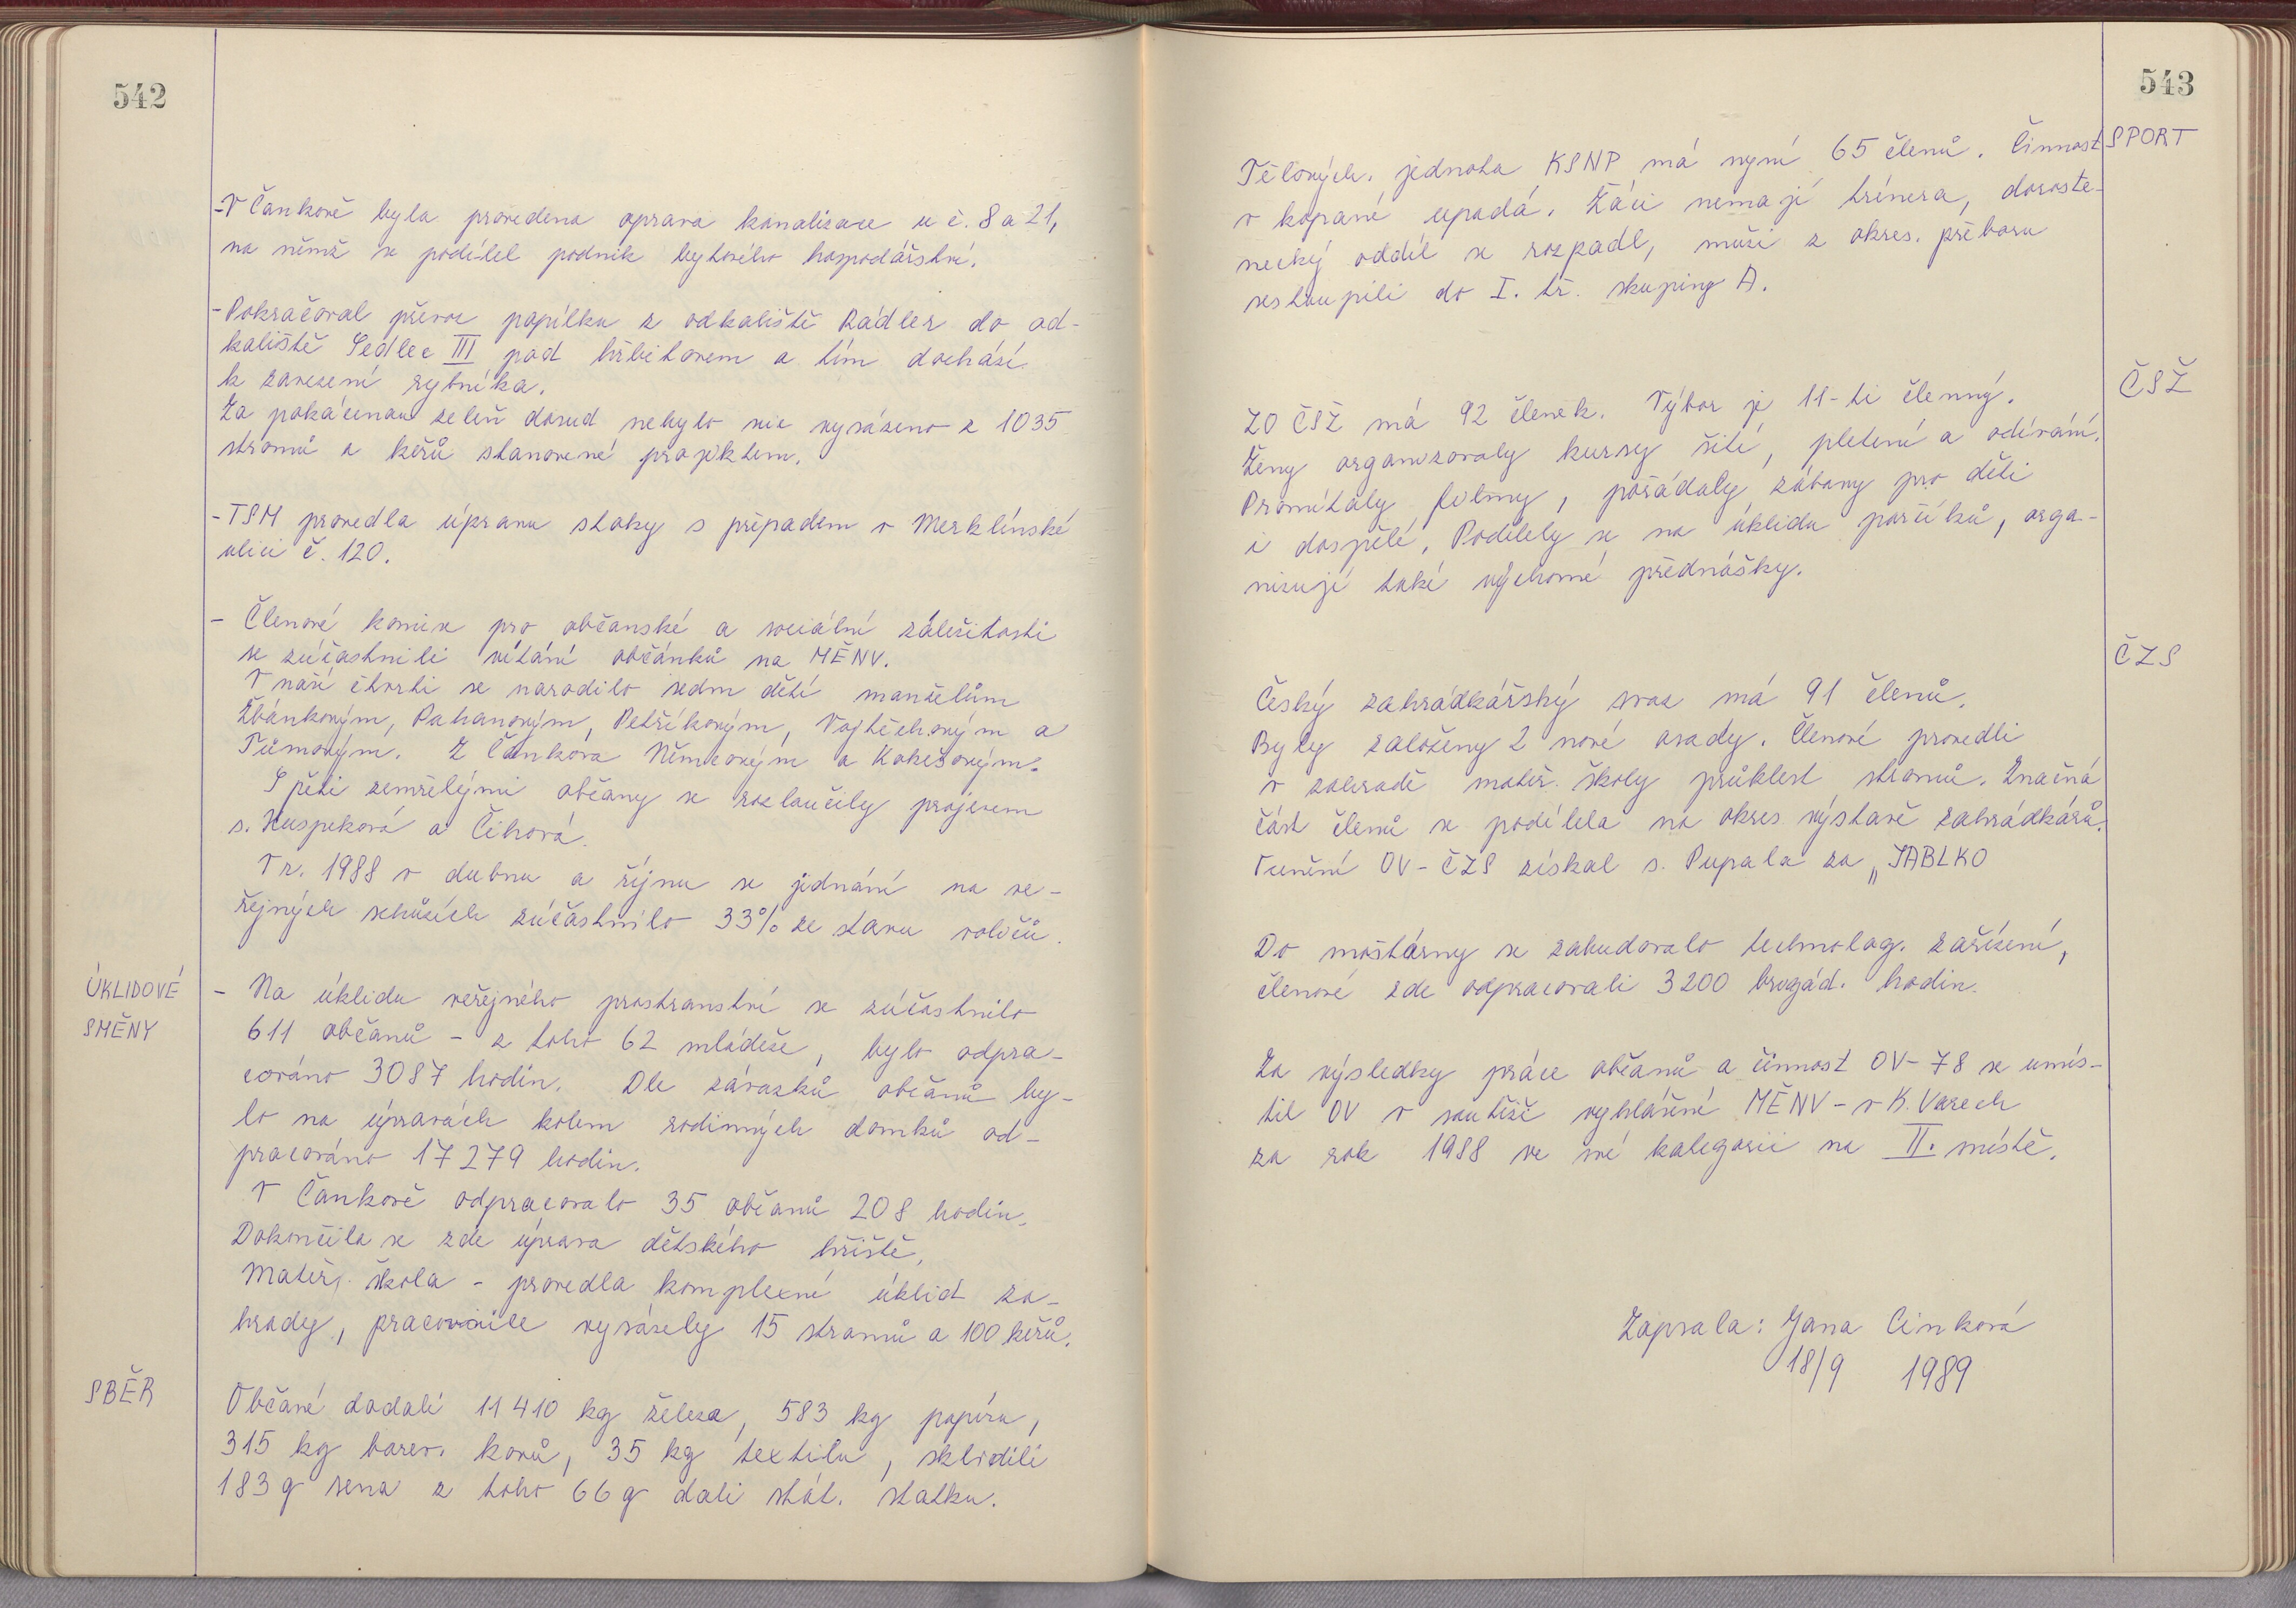 542
- V Čankově byla provedena oprava kanalizace u č. 8 a 21,
na němž se podílel podnik bytového hospodářství.
- Pokračoval převoz popílku z odkaliště Rádler do od-
kaliště Sedlec III pod hřbitovem a tím dochází
k zavezení rybníka.
Za pokácenou zeleň dosud nebylo nic vysázeno z 1035
stromů a keřů stanovené projektem.
- TSM provedla úpravu stoky s případem v Merklínské
ulici č. 120.
- Členové komise pro občanské a sociální záležitosti
se zúčastnili vítání občánků na MĚNV.
V naší čtvrti se narodilo sedm dětí manželům
Žbánkovým, Pahanovým, Petříkovým, Vojtěchovým a
Tůmovým. Z Čankova Němcovým a Kokešovým.
S pěti zemřelými občany se rozloučily projevem
s. Kuspeková a Čihová.
V r. 1988 v dubnu a říjnu se jednání na ve-
řejných schůzích zúčastnilo 33% ze stavu voličů.
ÚKLIDOVÉ
SMĚNY
- Na úklidu veřejného prostranství se zúčastnilo
611 občanů - z toho 62 mládeže, bylo odpra-
cováno 3087 hodin. Dle závazků občanů by-
lo na úpravách kolem rodinných domků od-
pracováno 17279 hodin.
V Čankově odpracovalo 35 občanů 208 hodin.
Dokončila se zde úprava dětského hřiště.
Mateř. škola - provedla komplexní úklid za-
hrady, pracovnice vysázely 15 stromů a 100 keřů.
SBĚR
Občané dodali 11410 kg železa, 583 kg papíru,
315 kg barev. kovů, 35 kg textilu, sklidili
183 q sena z toho 66 q dali stát. statku.
543
SPORT
Tělových. jednota KSNP má nyní 65 členů. Činnost
v kopané upadá. Žáci nemají trénera, doroste-
necký oddíl se rozpadl, muži z okres. přeboru
sestoupili do I. tř. skupiny A.
ČSŽ
ZO ČSŽ má 92 členek. Výbor je 11-ti členný.
Ženy organizovaly kursy šití, pletení a odívání.
Promítaly filmy, pořádaly zábavy pro děti
i dospělé. Podílely se na úklidu parčíků, orga-
nizují také výchovné přednášky.
ČZS
Český zahrádkářský svaz má 91 členů.
Byly založeny 2 nové osady. Členové provedli
v zahradě mateř. školy průklest stromů. Značná
část členů se podílela na okres. výstavě zahrádkářů.
Ocenění OV-ČZS získal s. Pupala za „JABLKO
Do moštárny se zabudovalo technolog. zařízení,
členové zde odpracovali 3200 brigád. hodin.
Za výsledky práce občanů a činnost OV-78 se umís-
til OV v soutěži vyhlášené MĚNV - v K. Varech
za rok 1988 ve své kategorii na II. místě.
Zapsala: Jana Cinková
18/9 1989